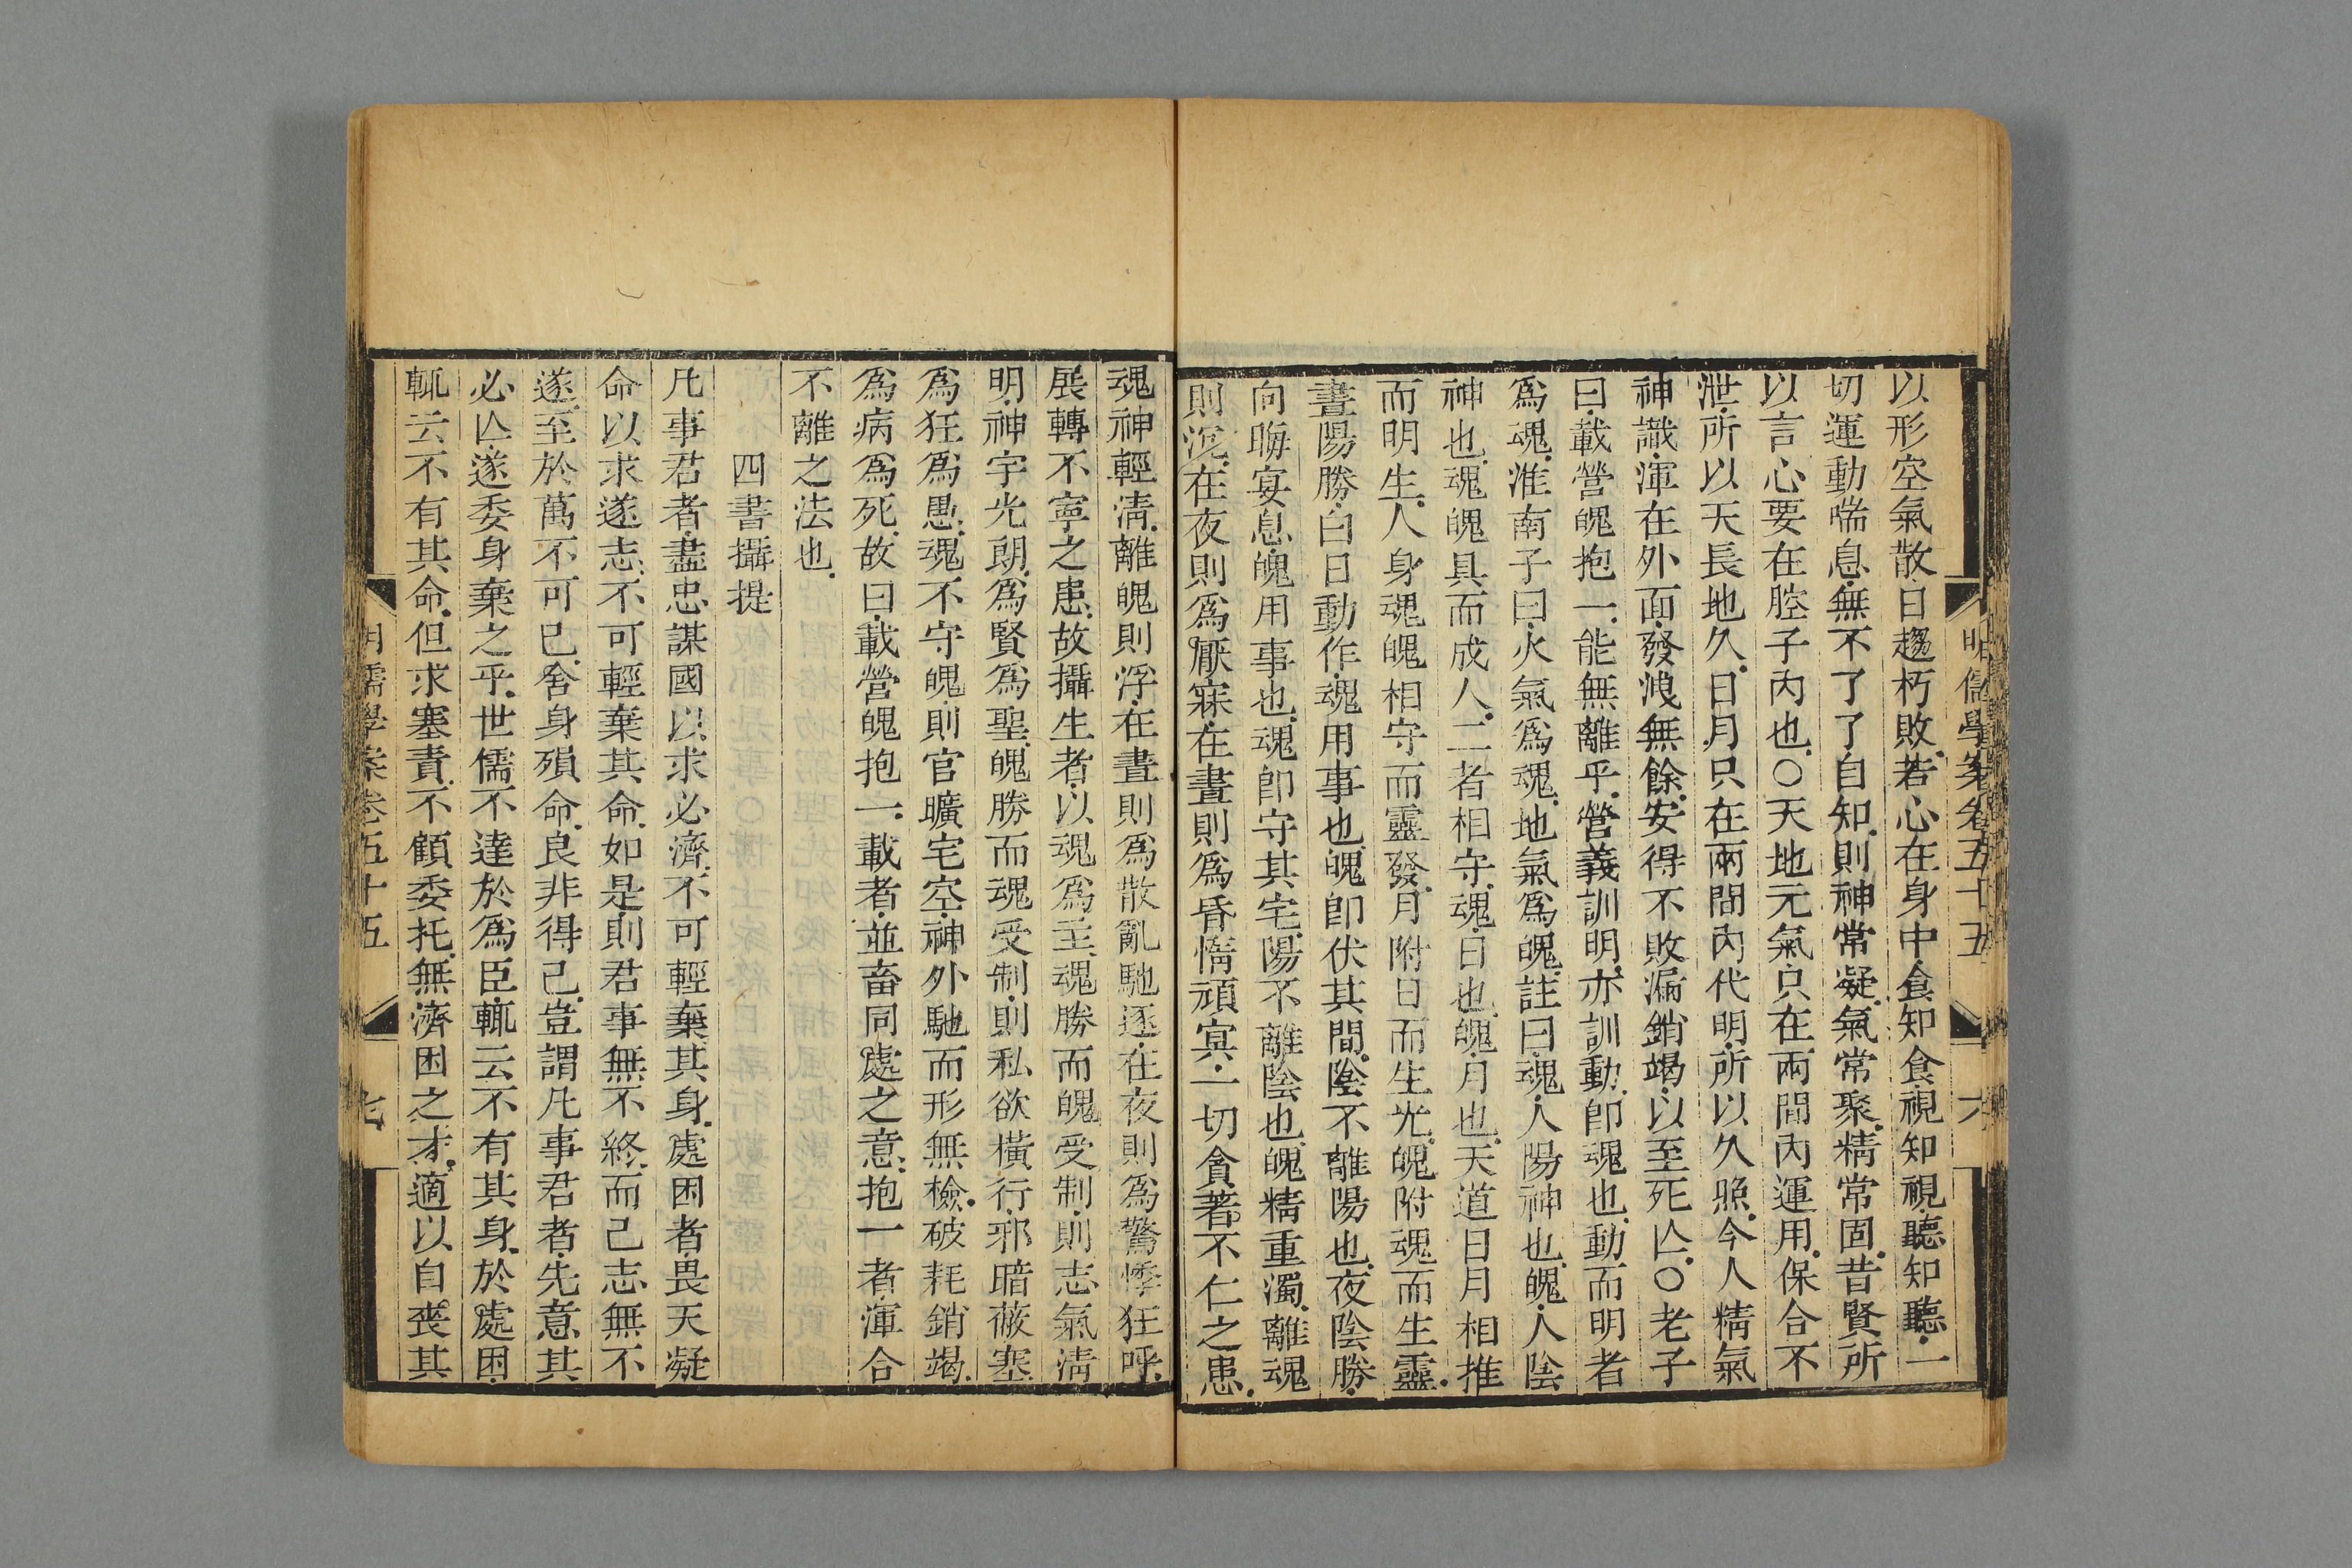 明儒學案卷五十五
六
以形空氣散日趨朽敗若心在身中食知食視知視聽知聽一
切運動喘息無不了了自知則神常凝氣常聚精常固昔賢所
以言心要在腔子內也○天地元氣只在兩間內運用保合不
泄所以天長地久日月只在兩間內代明所以久照今人精氣
神識渾在外面發洩無餘安得不敗漏銷竭以至死亾○老子
曰載營魄抱一能無離乎營義訓明亦訓動卽魂也動而明者
爲魂淮南子曰火氣爲魂地氣爲魄註曰魂人陽神也魄人陰
神也魂魄具而成人二者相守魂日也魄月也天道日月相推
而明生人身魂魄相守而靈發月附日而生光魄附魂而生靈
晝陽勝白日動作魂用事也魄卽伏其間陰不離陽也夜陰勝
向晦宴息魄用事也魂卽守其宅陽不離陰也魄精重濁離魂
則沉在夜則爲厭寐在晝則爲昏惰頑冥一切貪著不仁之患
魂神輕清離魄則浮在晝則爲散亂馳逐在夜則爲驚悸狂呼
展轉不寧之患故攝生者以魂爲主魂勝而魄受制則志氣清
明神宇光朗爲賢爲聖魄勝而魂受制則私欲橫行邪暗蔽塞
爲狂爲愚魂不守魄則官曠宅空神外馳而形無檢破耗銷竭
爲病爲死故曰載營魄抱一載者並畜同處之意抱一者渾合
不離之法也
四書攝提
凡事君者盡忠謀國以求必濟不可輕棄其身處困者畏天凝
命以求遂志不可輕棄其命如是則君事無不終而己志無不
遂至於萬不可已舍身殞命良非得已豈謂凡事君者先意其
必亾遂委身棄之乎世儒不達於爲臣輒云不有其身於處困
輒云不有其命但求塞責不顧委托無濟困之才適以自喪其
明儒學案卷五十五
七